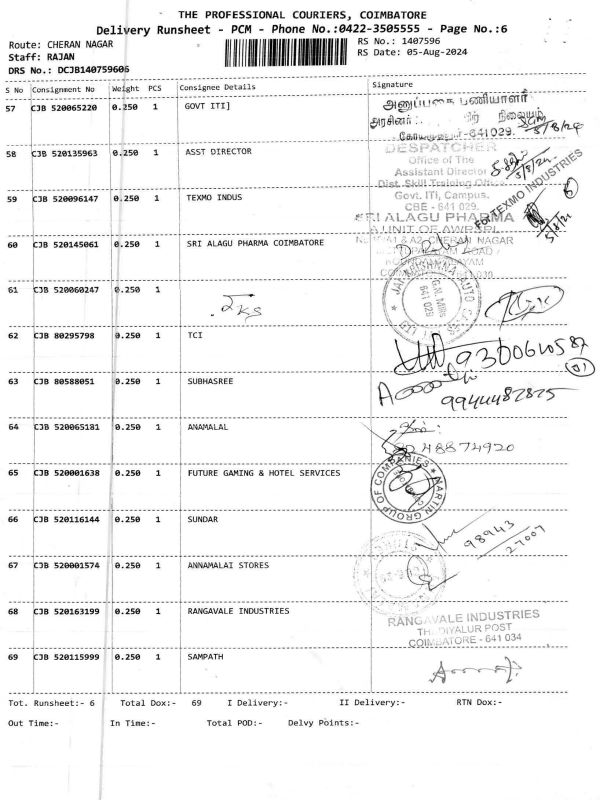 THE PROFESSIONAL COURIERS, COIMBATORE
Delivery Runsheet - PCM - Phone No.:0422-3505555 - Page No.:6
Route: CHERAN NAGAR
RS No.: 1407596
Staff: RAJAN
RS Date: 05-Aug-2024
DRS No.: DCJB140759606
S No Consignment No Weight PCS Consignee Details Signature
57 CJB 520065220 0.250 1 GOVT ITI]
அனுப்பகை பணியாளர்
அரசினர் நிலையம்
-641029.
5/8/24
58 CJB 520135963 0.250 1 ASST DIRECTOR
DESPATCHER
Office of The
Assistant Director
Dist. Skill Training Office
Govt. ITI, Campus.
CBE - 641 029.
5/8/24
59 CJB 520096147 0.250 1 TEXMO INDUS
For TEXMO INDUSTRIES
6
5/8/24
60 CJB 520145061 0.250 1 SRI ALAGU PHARMA COIMBATORE
SRI ALAGU PHARMA
A UNIT OF
A2, CHERAN NAGAR
ROAD
61 CJB 520060247 0.250 1
JAI KRISHNA AUTO
G.N. Mills
641 029
62 CJB 80295798 0.250 1 TCI
63 CJB 80588051 0.250 1 SUBHASREE
9944482825
64 CJB 520065181 0.250 1 ANAMALAL
48874920
65 CJB 520001638 0.250 1 FUTURE GAMING & HOTEL SERVICES
MARTIN GROUP OF COMPANIES
66 CJB 520116144 0.250 1 SUNDAR
98943
27007
67 CJB 520001574 0.250 1 ANNAMALAI STORES
68 CJB 520163199 0.250 1 RANGAVALE INDUSTRIES
RANGAVALE INDUSTRIES
THUDIYALUR POST
COIMBATORE - 641 034
69 CJB 520115999 0.250 1 SAMPATH
Tot. Runsheet:- 6 Total Dox:- 69 I Delivery:- II Delivery:- RTN Dox:-
Out Time:- In Time:- Total POD:- Delvy Points:-